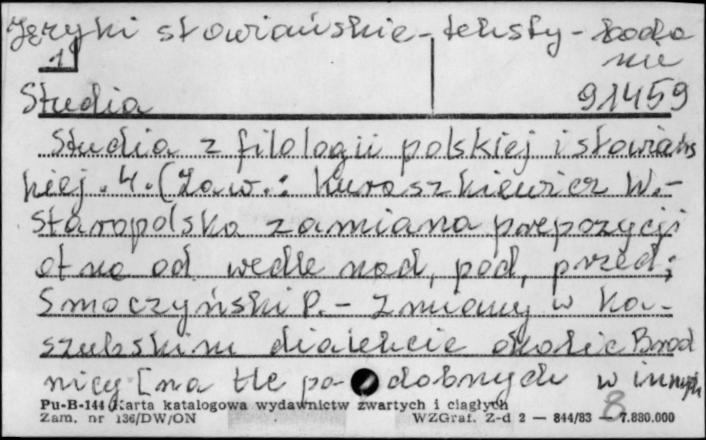 Języki słowiańskie - teksty - bada
nie
1
Studia 91459
Studia z filologii polskiej i słowiańs
kiej. 4. (Zaw.: Kuraszkiewicz W. -
Staropolska zamiana prepozycji
ot na od wedle nad, pod, przed;
Smoczyński P. - Zmiany w ka-
szubskim dialekcie okolic Brod
nicy [na tle po- dobnych w innych
Pu-B-144 Karta katalogowa wydawnictw zwartych i ciągłych
Zam. nr 136/DW/ON WZGraf. Z-d 2 — 844/83 — 7.880.000
8